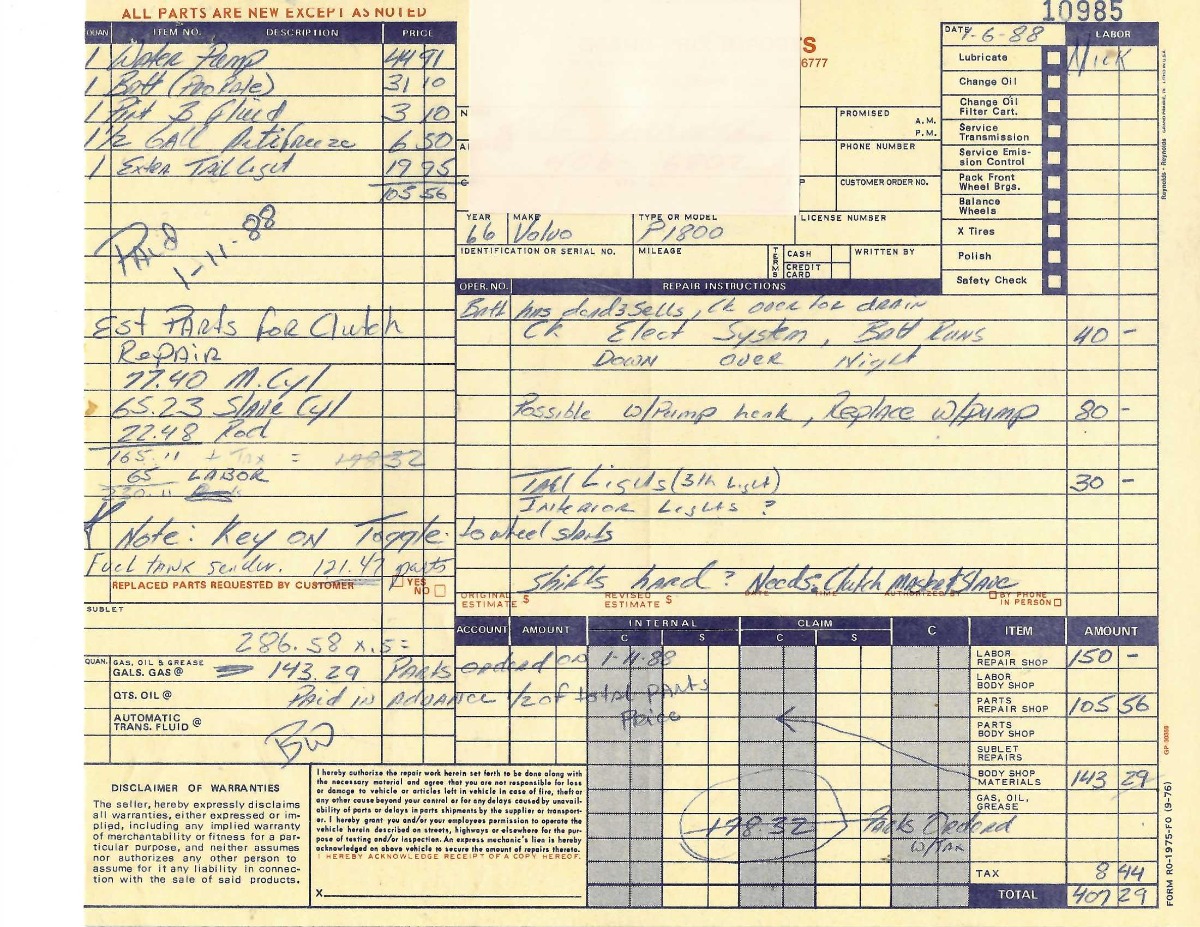 ALL PARTS ARE NEW EXCEPT AS NOTED
10985
QUAN. ITEM NO. DESCRIPTION PRICE
1 Water Pump 44 91
1 Batt (ProRate) 31 10
1 Pint B Fluid 3 10
1 1/2 GALL Antifreeze 6 50
1 Exter Tail Light 19 95
105 56
PAID
1-11-88
Est PARTS for Clutch
Repair
77.40 M.Cyl
65.23 Slave Cyl
22.48 Rod
165.11 + Tax = 178 32
65 LABOR
230.11
Note: Key on Toggle to wheel starts
Fuel tank sender. 121.47 parts
REPLACED PARTS REQUESTED BY CUSTOMER YES NO
SUBLET
286.58 x .5 =
QUAN. GAS, OIL & GREASE
GALS. GAS @ 143.29 Parts ordered on 1-11-88
QTS. OIL @ Paid in advance 1/2 of total parts
Price
AUTOMATIC
TRANS. FLUID @
BW
S
6777
DATE 1-6-88
LABOR
Nick
Lubricate
Change Oil
Change Oil
Filter Cart.
Service
Transmission
Service Emis-
sion Control
Pack Front
Wheel Brgs.
Balance
Wheels
X Tires
Polish
Safety Check
N
PROMISED
A.M.
P.M.
PHONE NUMBER
CUSTOMER ORDER NO.
P
YEAR MAKE TYPE OR MODEL LICENSE NUMBER
66 Volvo P1800
IDENTIFICATION OR SERIAL NO. MILEAGE TERMS CASH CREDIT CARD WRITTEN BY
OPER. NO. REPAIR INSTRUCTIONS
Batt has dead 3 sells, Ck over for drain
Ck Elect System, Batt Runs 40 -
Down over Night
Possible w/Pump leak, Replace w/pump 80 -
Tail Lights (3th Light) 30 -
Interior Lights ?
Shifts hard? Needs Clutch Master Slave
ORIGINAL ESTIMATE $ REVISED ESTIMATE $ DATE TIME AUTHORIZED BY BY PHONE IN PERSON
ACCOUNT AMOUNT INTERNAL CLAIM C ITEM AMOUNT
C S C S
LABOR
REPAIR SHOP 150 -
LABOR
BODY SHOP
PARTS
REPAIR SHOP 105 56
PARTS
BODY SHOP
SUBLET
REPAIRS
BODY SHOP
MATERIALS 143 29
GAS, OIL,
GREASE
178 32 Parts Ordered
w/Tax
TAX 8 44
TOTAL 407 29
DISCLAIMER OF WARRANTIES
The seller, hereby expressly disclaims
all warranties, either expressed or im-
plied, including any implied warranty
of merchantability or fitness for a par-
ticular purpose, and neither assumes
nor authorizes any other person to
assume for it any liability in connec-
tion with the sale of said products.
I hereby authorize the repair work herein set forth to be done along with
the necessary material and agree that you are not responsible for loss
or damage to vehicle or articles left in vehicle in case of fire, theft or
any other cause beyond your control or for any delays caused by unavail-
ability of parts or delays in parts shipments by the supplier or transport-
er. I hereby grant you and/or your employees permission to operate the
vehicle herein described on streets, highways or elsewhere for the pur-
pose of testing and/or inspection. An express mechanic's lien is hereby
acknowledged on above vehicle to secure the amount of repairs thereto.
I HEREBY ACKNOWLEDGE RECEIPT OF A COPY HEREOF.
X
FORM RO-1975-FO (9-76)